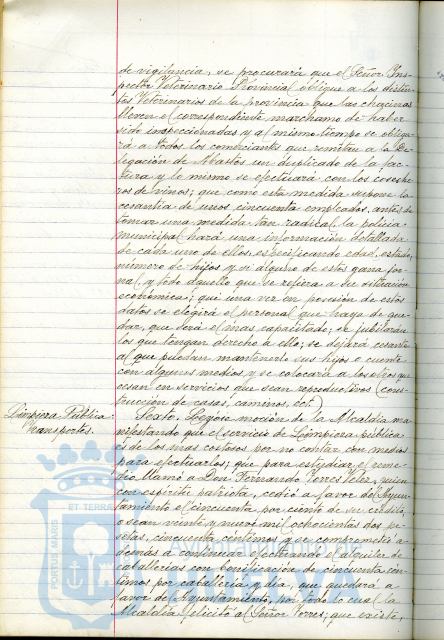 de vigilancia, se procurará que el Señor Ins-
pector Veterinario Provincial obligue a los distin-
tos Veterinarios de la provincia que las chacinas
lleven el correspondiente marchamo de haber
sido inspeccionadas y al mismo tiempo se obliga-
rá a todos los comerciantes que remitan a la De-
legación de Abastos un duplicado de la fac-
tura y lo mismo se efectuará con los coseche-
ros de vinos; que como esta medida supone la
cesantía de unos cincuenta empleados, antes de
tomar una medida tan radical, la policía
municipal hará una información detallada
de cada uno de ellos, especificando edad, estado,
número de hijos y si alguno de estos gana jor-
nal, y todo aquello que se refiera a su situación
económica; que una vez en posesión de estos
datos se elegirá el personal que haya de que-
dar, que será el mas capacitado; se jubilarán
los que tengan derecho a ello; se dejará cesante
al que puedan mantenerlo sus hijos o cuente
con algunos medios y se colocará a los otros que
cesan en servicios que sean reproductivos (cons-
trucción de casas, caminos, ect.)
Limpieza Pública
Transportes.
Sexto: Leyóse moción de la Alcaldía ma-
nifestando que el servicio de Limpieza pública
es de los mas costosos por no contar con medios
para efectuarlos; que para estudiar el reme-
dio llamó a Don Fernando Torres Velez, quien
con espíritu patriota, cedió a favor del Ayun-
tamiento el cincuenta por ciento de su crédito,
o sean veinte y nueve mil ochocientas dos pe-
setas, cincuenta céntimos y se comprometió a-
demás a continuar efectuando el alquiler de
caballerías con bonificación de cincuenta cén-
timos por caballería y día, que quedará a
favor del Ayuntamiento, por todo lo cual la
Alcaldía felicitó al Señor Torres; que existe,
PORTUS MARIS
ET TERRA